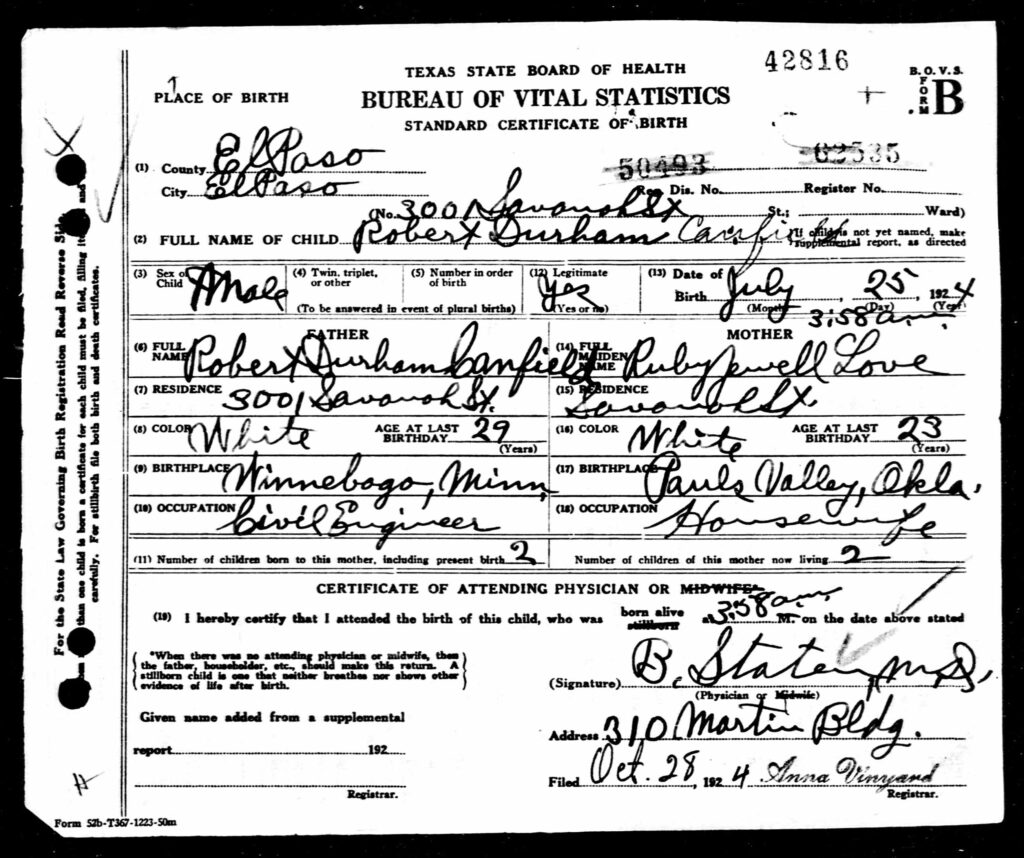 42816
TEXAS STATE BOARD OF HEALTH
B. O. V. S.
FORM B
PLACE OF BIRTH
BUREAU OF VITAL STATISTICS
STANDARD CERTIFICATE OF BIRTH
(1) County El Paso
50493 62535
City El Paso
Reg. Dis. No. Register No.
(No. 3001 Savanah St St.; Ward)
(2) FULL NAME OF CHILD Robert Durham Canfield
If child is not yet named, make
supplemental report, as directed
(3) Sex of Child Male
(4) Twin, triplet, or other
(5) Number in order of birth
(To be answered in event of plural births)
(12) Legitimate Yes
(Yes or no)
(13) Date of Birth July 25 1924
(Month) (Day) (Year)
3:58 a.m.
FATHER
MOTHER
(6) FULL NAME Robert Durham Canfield
(14) FULL MAIDEN NAME Ruby Jewell Love
(7) RESIDENCE 3001 Savanah St.
(15) RESIDENCE Savanah St.
(8) COLOR White AGE AT LAST BIRTHDAY 29
(Years)
(16) COLOR White AGE AT LAST BIRTHDAY 23
(Years)
(9) BIRTHPLACE Winnebago, Minn.
(17) BIRTHPLACE Pauls Valley, Okla.
(10) OCCUPATION Civil Engineer
(18) OCCUPATION Housewife
(11) Number of children born to this mother, including present birth 2
Number of children of this mother now living 2
CERTIFICATE OF ATTENDING PHYSICIAN OR MIDWIFE*
(19) I hereby certify that I attended the birth of this child, who was born alive stillborn 3:58 a.m. M. on the date above stated
*When there was no attending physician or midwife, then
the father, householder, etc., should make this return. A
stillborn child is one that neither breathes nor shows other
evidence of life after birth.
(Signature) B. Staten, M.D.
(Physician or Midwife)
Given name added from a supplemental
Address 310 Martin Bldg.
report 192
Filed Oct. 28, 1924 Anna Vinyard
Registrar.
Registrar.
Form 52b-T367-1223-50m
For the State Law Governing Birth Registration Read Reverse Side
than one child is born a certificate for each child must be filed, filling
carefully. For stillbirth file both birth and death certificates.